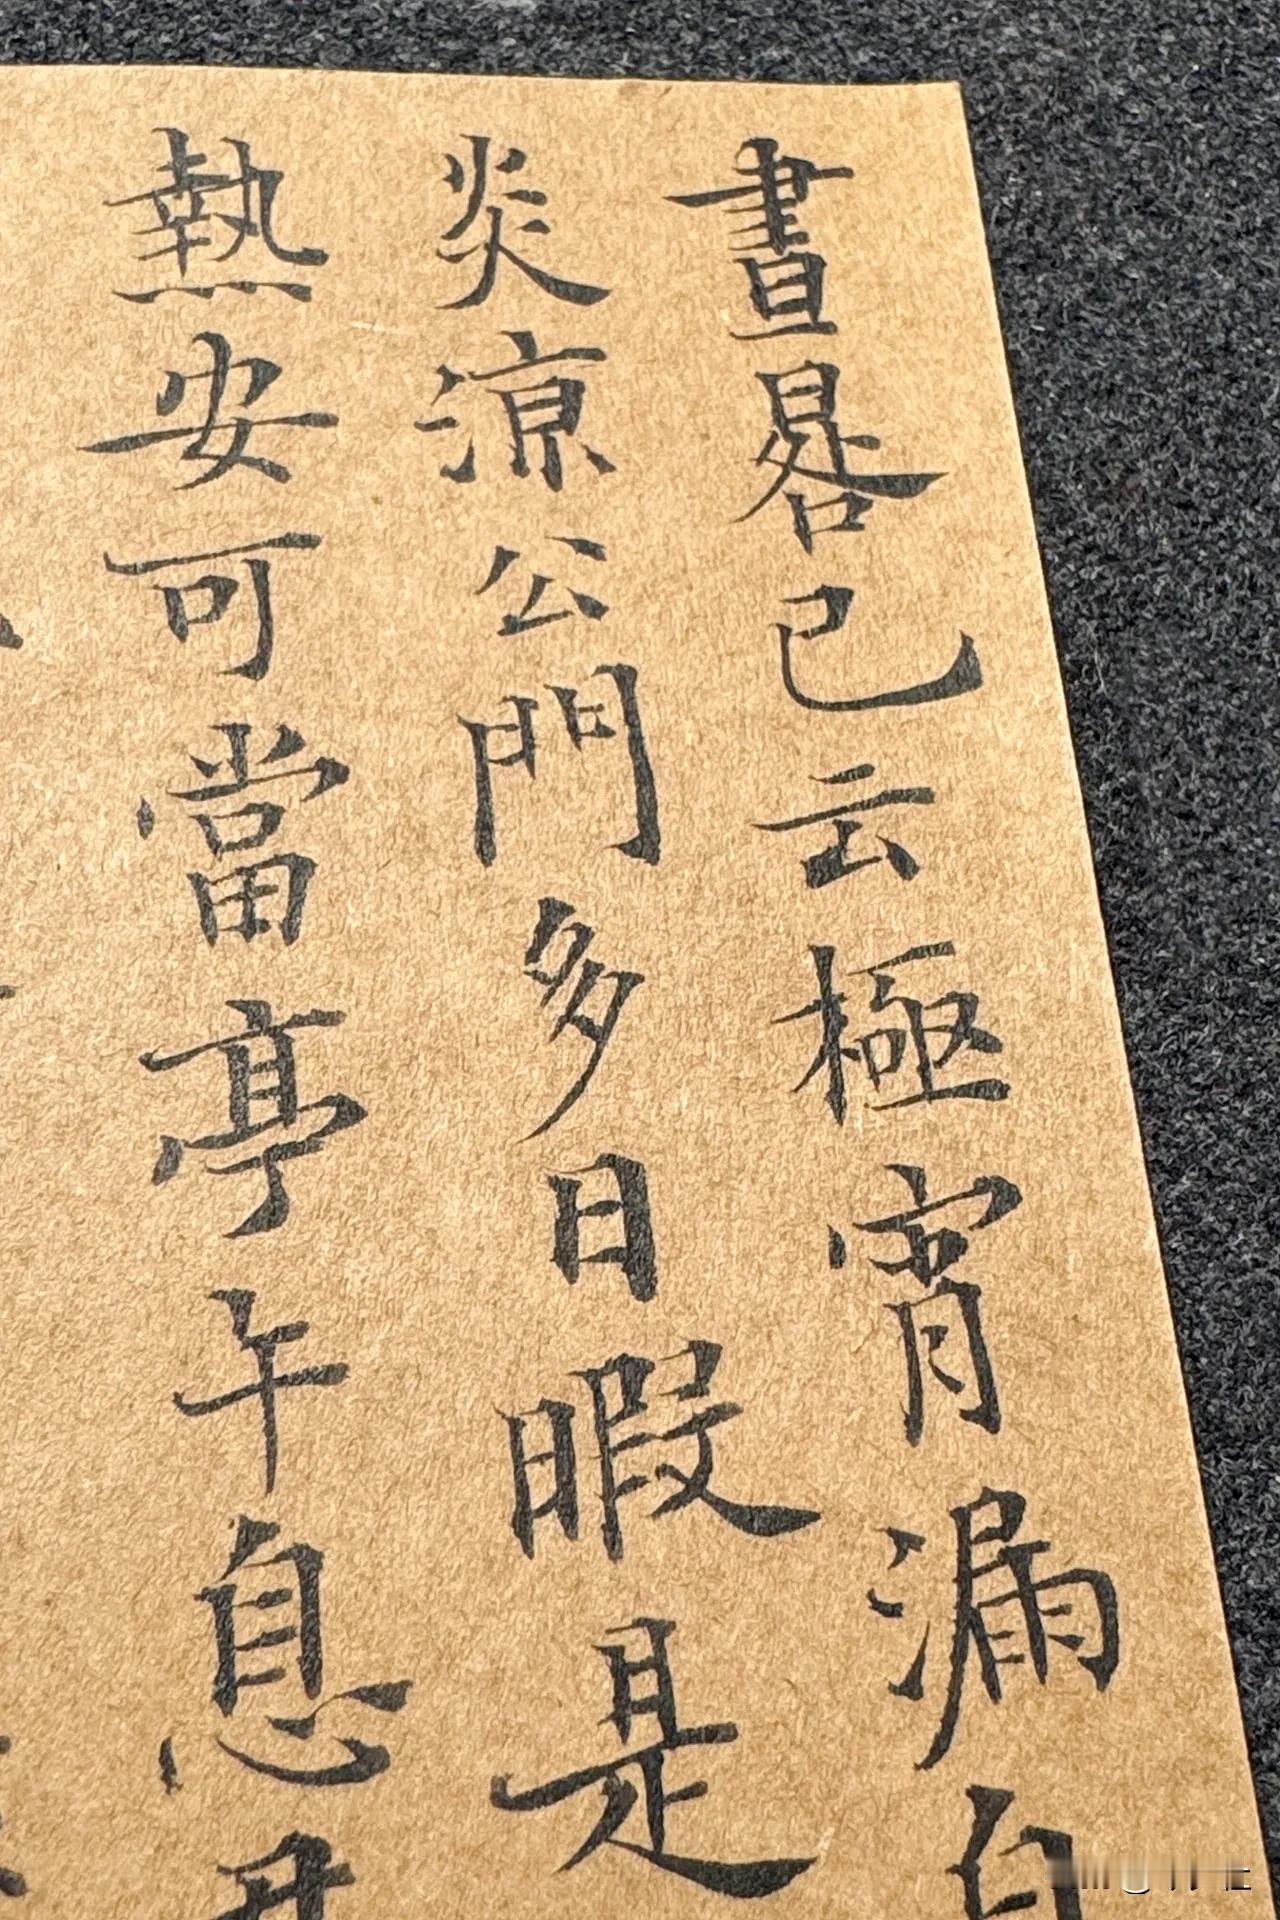 晝晷已云極宵漏自
炎涼公門多日暇是
熱安可當亭午息羣